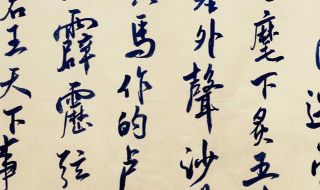 麾下炙五
外聲沙
馬作的卢
霹靂弦
君王天下事